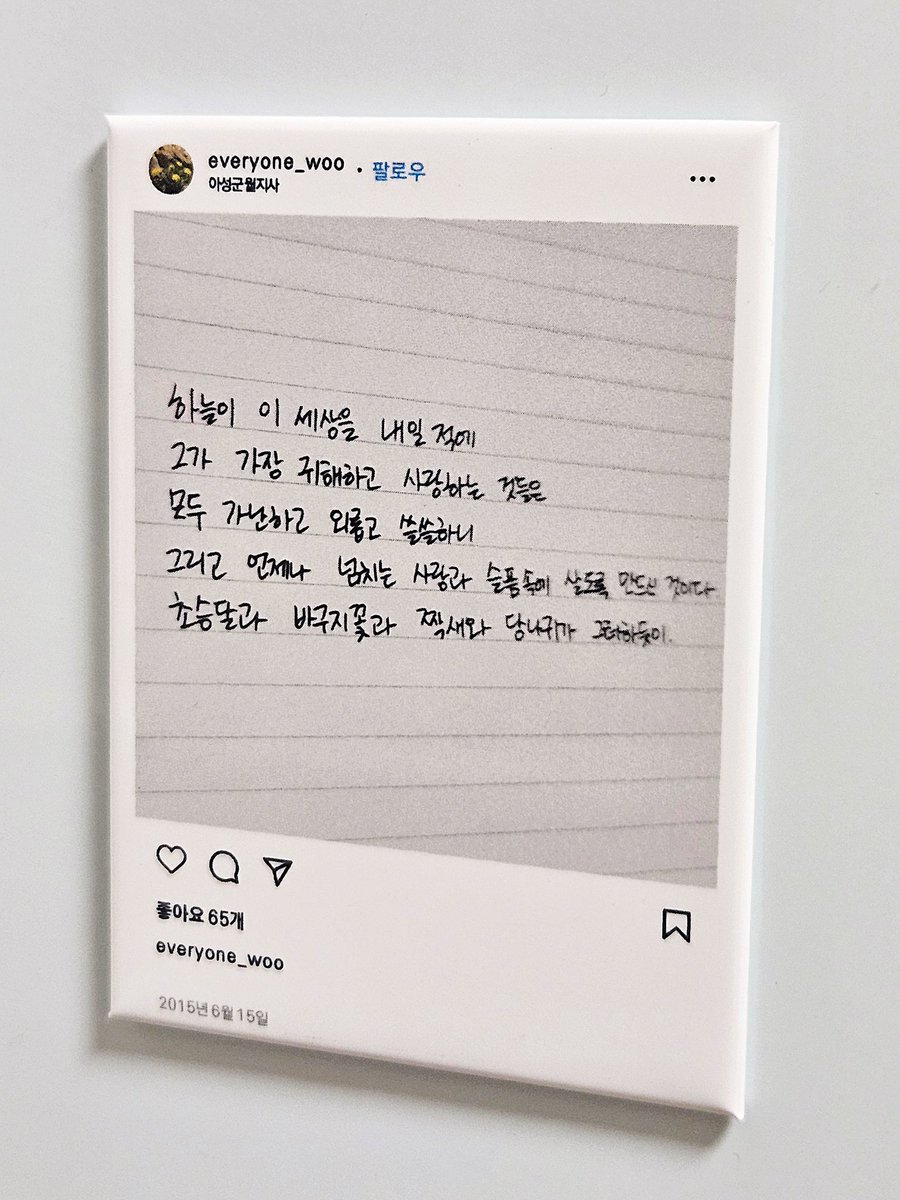 everyone_woo · 팔로우
아성군월지사
하늘이 이 세상을 내일 적에
그가 가장 귀해하고 사랑하는 것들은
모두 가난하고 외롭고 쓸쓸하니
그리고 언제나 넘치는 사랑과 슬픔속에 살도록 만드신 것이다.
초승달과 바구지꽃과 짝새와 당나귀가 그러하듯이.
좋아요 65개
everyone_woo
2015년 6월 15일